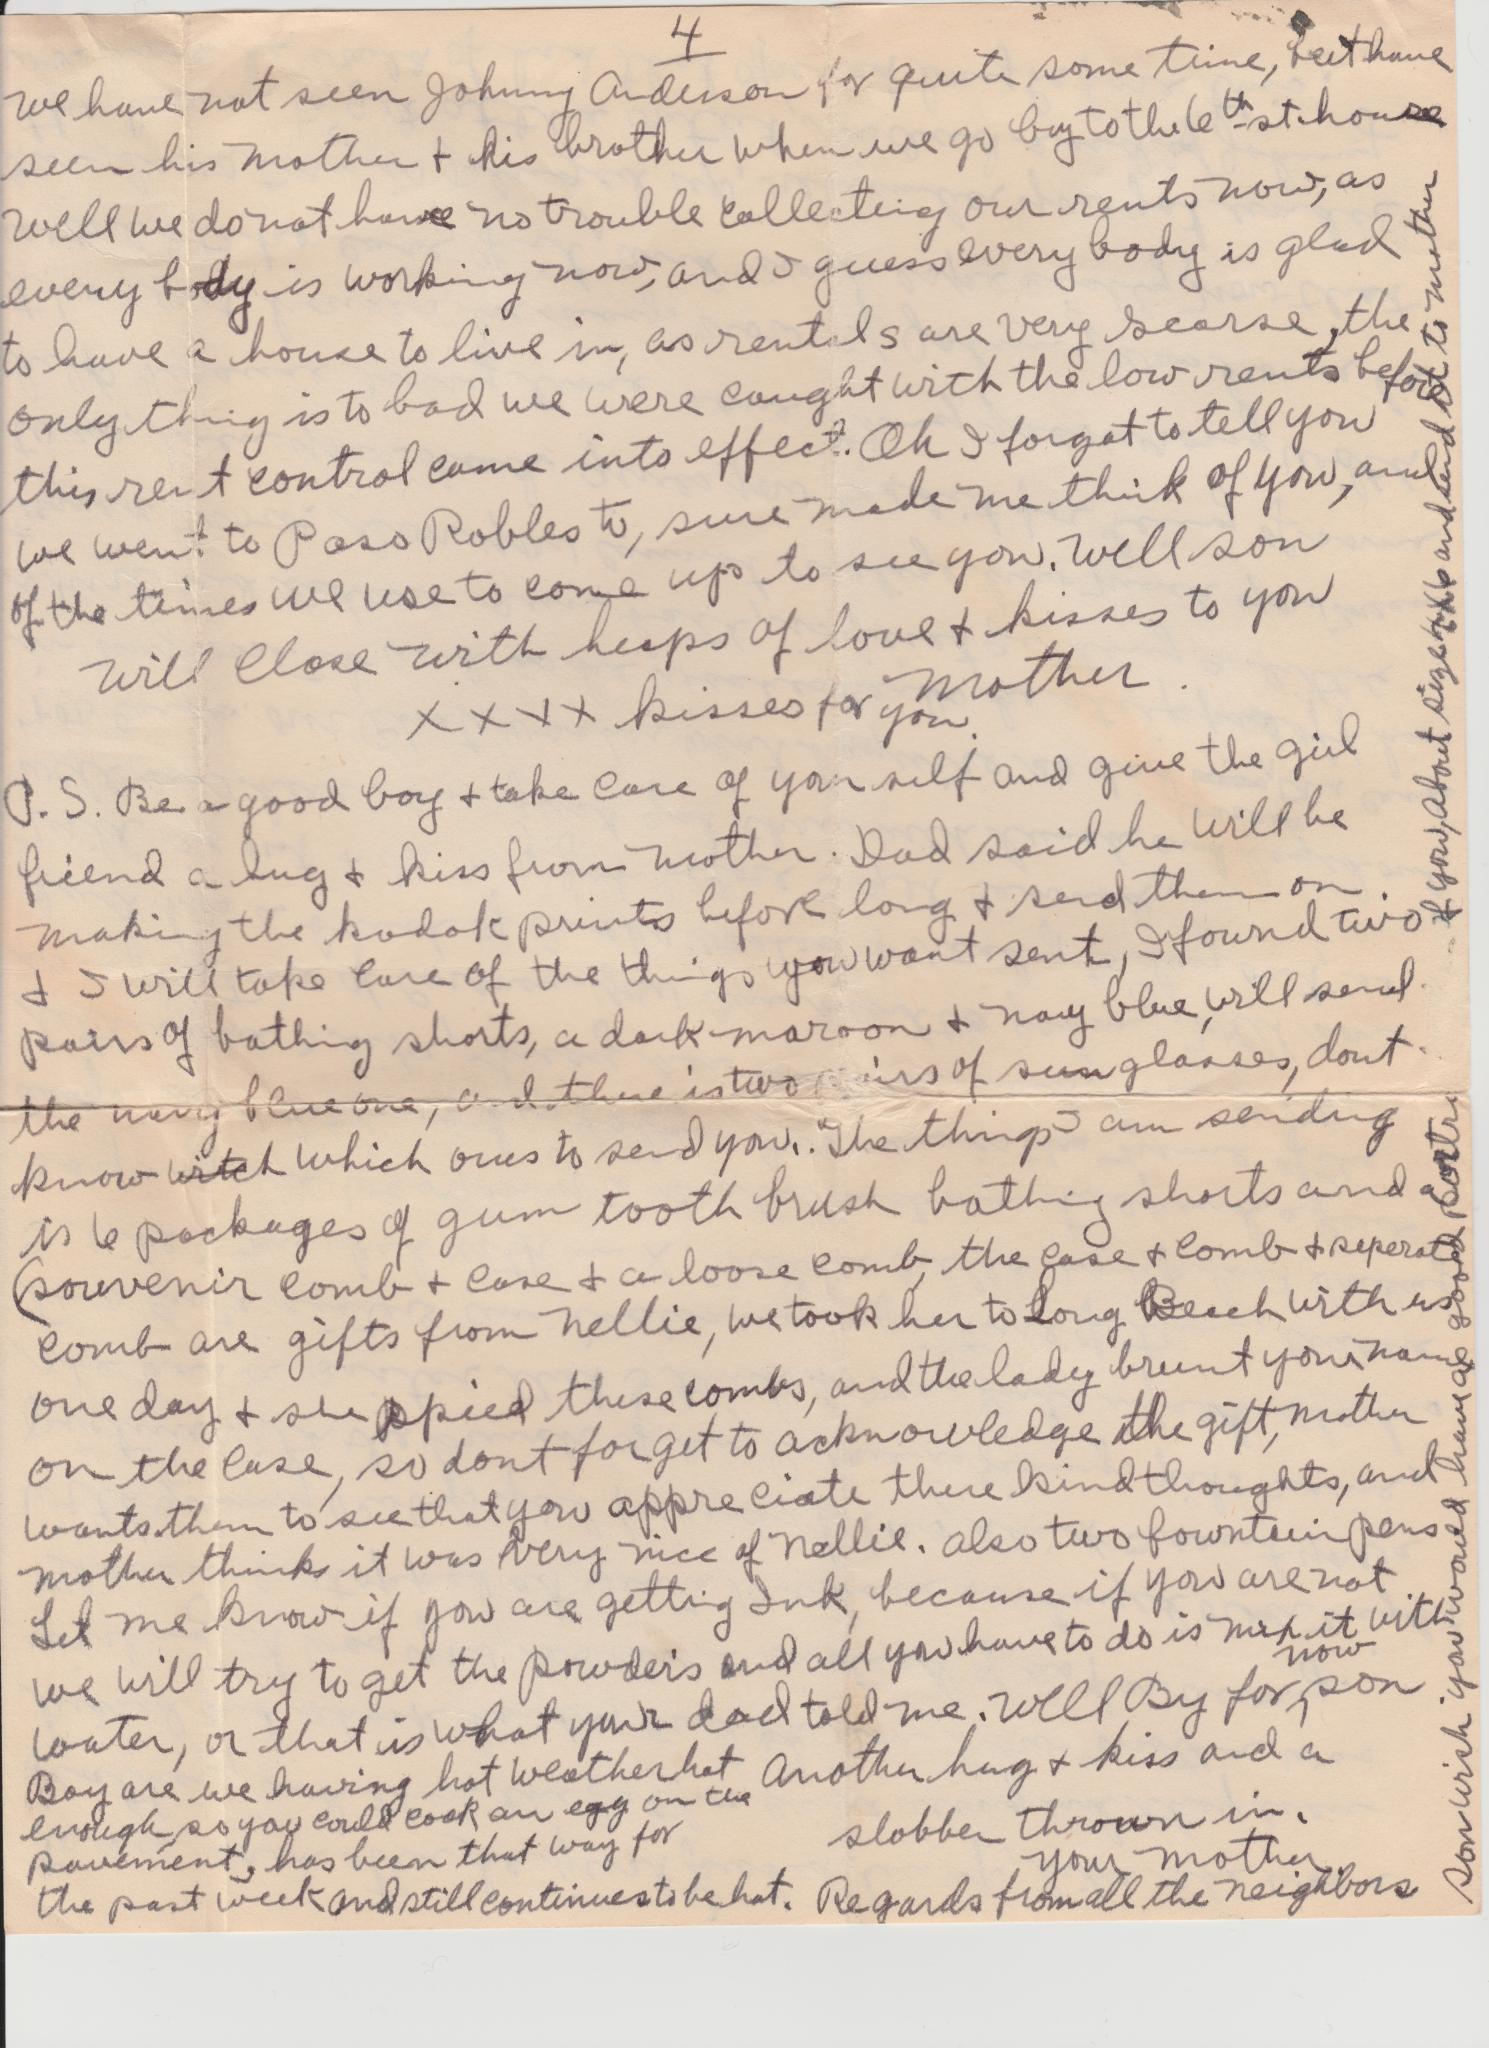 4
We have not seen Johnny Anderson for quite some time, but have
seen his mother & his brother when we go by to the 6th st. house
Well we do not have no trouble collecting our rents now, as
every body is working now, and I guess every body is glad
to have a house to live in, as rentals are very scarse, the
only thing is to bad we were caught with the low rents before
this rent control came into effect. Oh I forgot to tell you
we went to Paso Robles to, sure made me think of you, and
of the times we use to come up to see you. Well son
will close with heaps of love & kisses to you
Mother.
xxxx kisses for you.
P.S. Be a good boy & take care of your self and give the girl
friend a hug & kiss from mother. Dad said he will be
making the kodak prints before long & send them on.
& I will take care of the things you want sent, I found two
pairs of bathing shorts, a dark maroon & navy blue, will send
the navy blue one, and there is two pairs of sunglasses, dont
know witch which ones to send you. The things I am sending
is 6 packages of gum tooth brush bathing shorts and a
(souvenir comb & case & a loose comb, the case & comb & seperate
comb are gifts from Nellie, we took her to Long Beach with us
one day & she spied these combs, and the lady brunt your name
on the case, so dont forget to acknowledge the gift, mother
wants them to see that you appreciate there kind thoughts, and
mother thinks it was very nice of Nellie. also two fountein pens
Let me know if you are getting Ink, because if you are not
we will try to get the powders and all you have to do is mix it with
water, or that is what your dad told me. Well By for now son
Another hug & kiss and a
slobber thrown in.
your mother.
Regards from all the neighbors
Boy are we having hot weather hot
enough, so you could cook an egg on the
pavement, has been that way for
the past week and still continues to be hot.
Son wish you would have a good portri
of you, about size and send it to mother